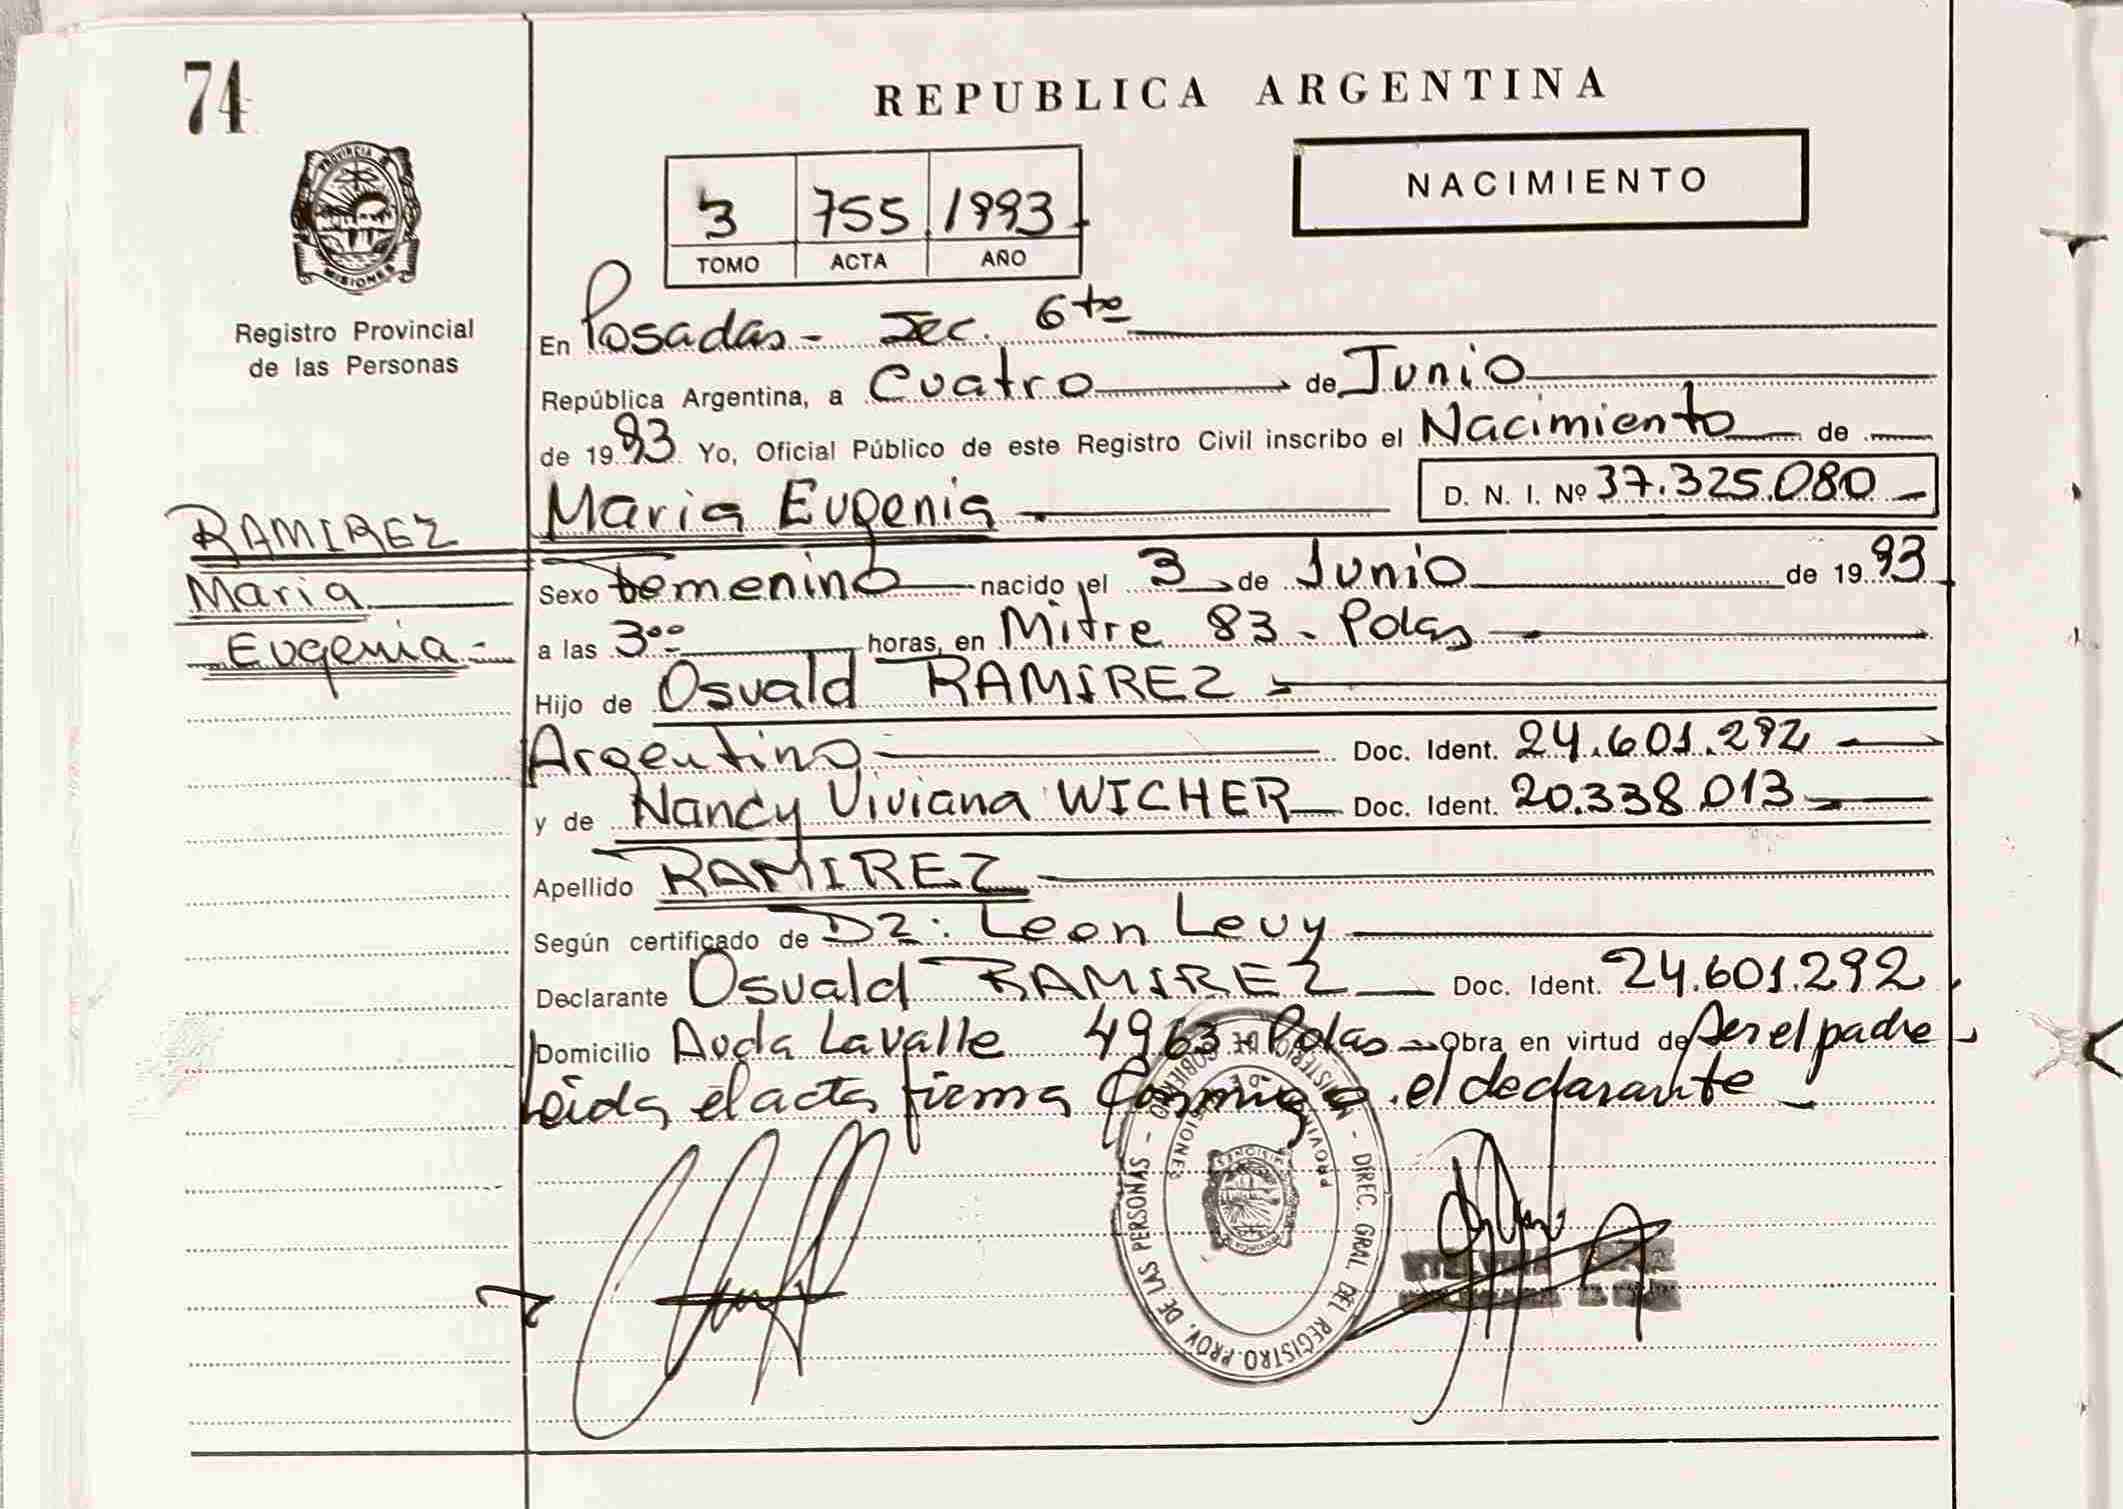 74
REPUBLICA ARGENTINA
PROVINCIA DE
MISIONES
Registro Provincial
de las Personas
NACIMIENTO
3 755 1993
TOMO ACTA AÑO
En Posadas - Sec. 6ta
República Argentina, a Cuatro de Junio
de 1993 Yo, Oficial Público de este Registro Civil inscribo el Nacimiento de
Maria Eugenia D. N. I. Nº 37.325.080
RAMIREZ
Maria
Eugenia
Sexo femenino nacido el 3 de Junio de 1993
a las 3⁰⁰ horas, en Mitre 83 - Pdas
Hijo de Osvald RAMIREZ
Argentino Doc. Ident. 24.601.292
y de Nancy Viviana WICHER Doc. Ident. 20.338.013
Apellido RAMIREZ
Según certificado de Dr: Leon Levy
Declarante Osvald RAMIREZ Doc. Ident. 24.601.292
Domicilio Avda Lavalle 4963 - Pdas - Obra en virtud de Ser el padre
Leida el acta firma conmigo el declarante
MINISTERIO DE GOBIERNO - DIREC. GRAL. DEL REGISTRO PROV. DE LAS PERSONAS -
PROVINCIA DE MISIONES